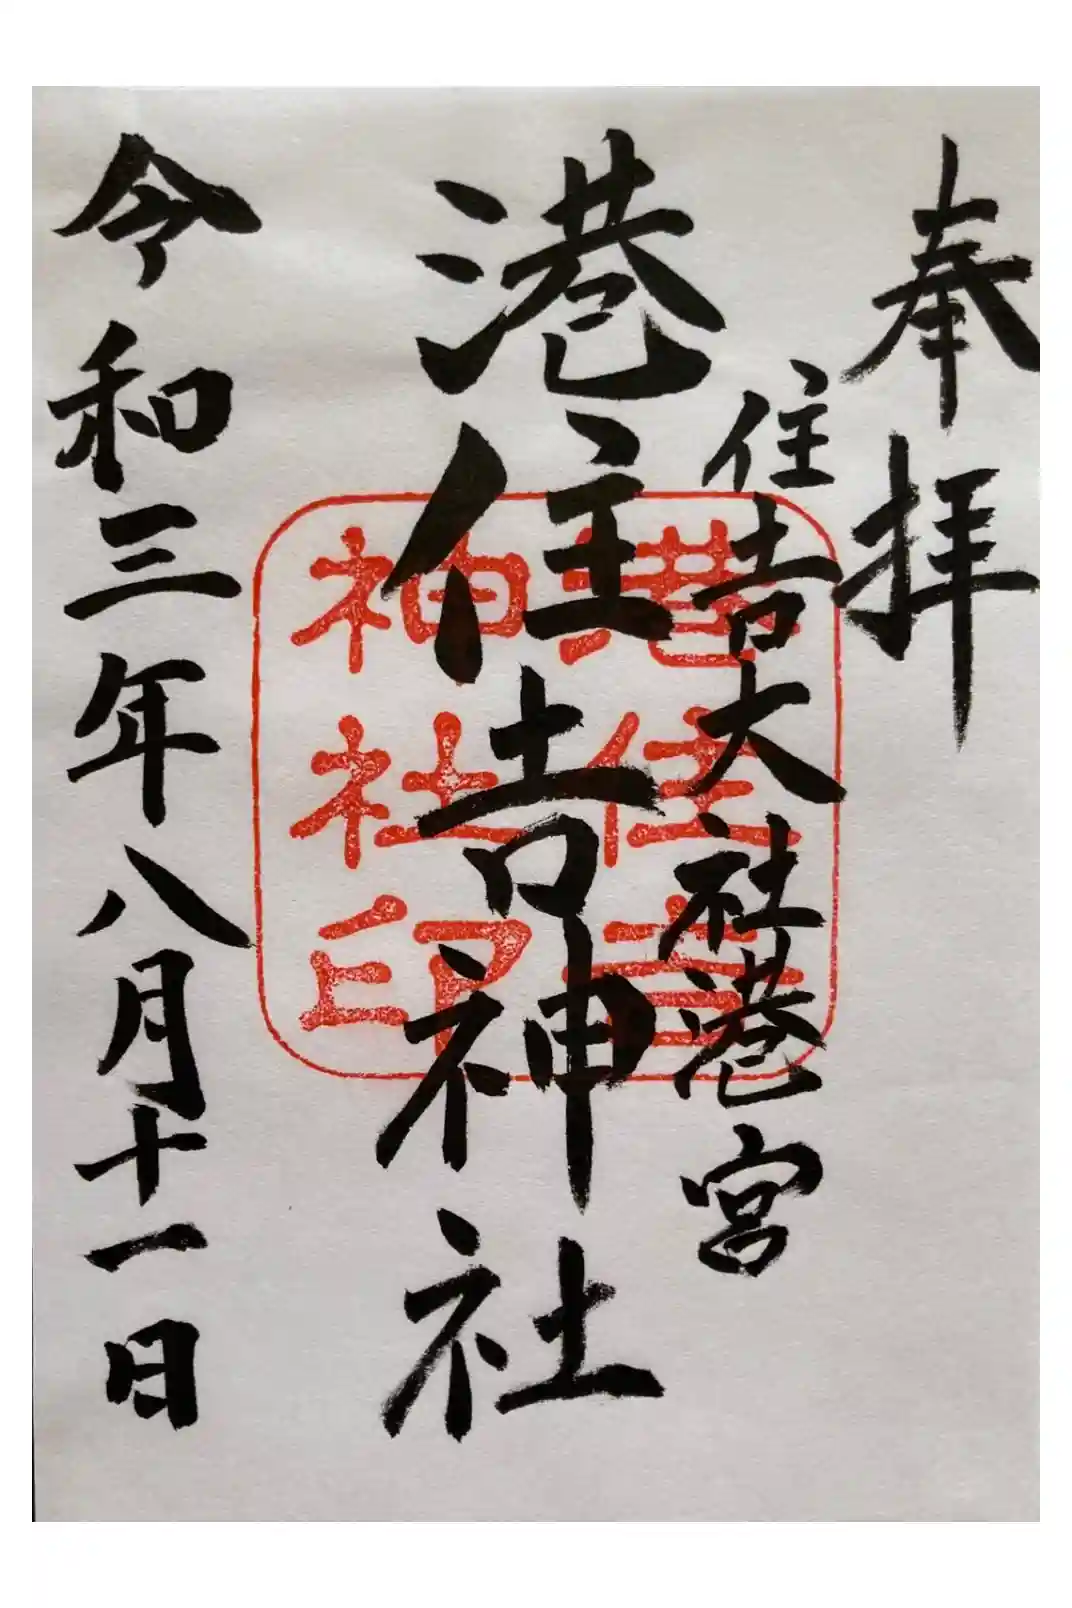 奉拝
住吉大社港宮
港住吉神社
港住吉
神社印
令和三年八月十一日